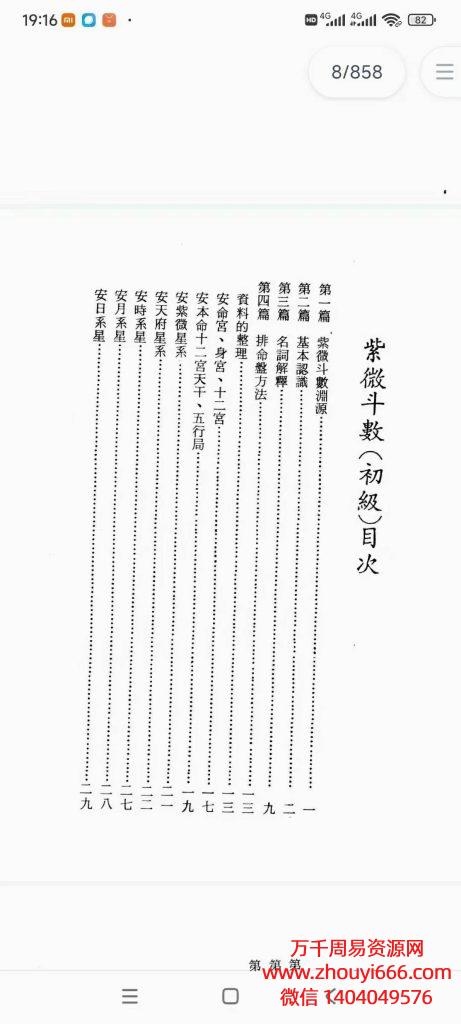 19:16
HD 4G 4G 82
8/858
紫微斗數(初級)目次
第一篇 紫微斗數淵源……一
第二篇 基本認識……二
第三篇 名詞解釋……九
第四篇 排命盤方法……一三
資料的整理……一三
安命宮、身宮、十二宮……一七
安本命十二宮天干、五行局……一九
安紫微星系……二一
安天府星系……二二
安時系星……二七
安月系星……二八
安日系星……二九
第 第 第
万千周易资源网
www.zhouyi666.com
微信 1404049576